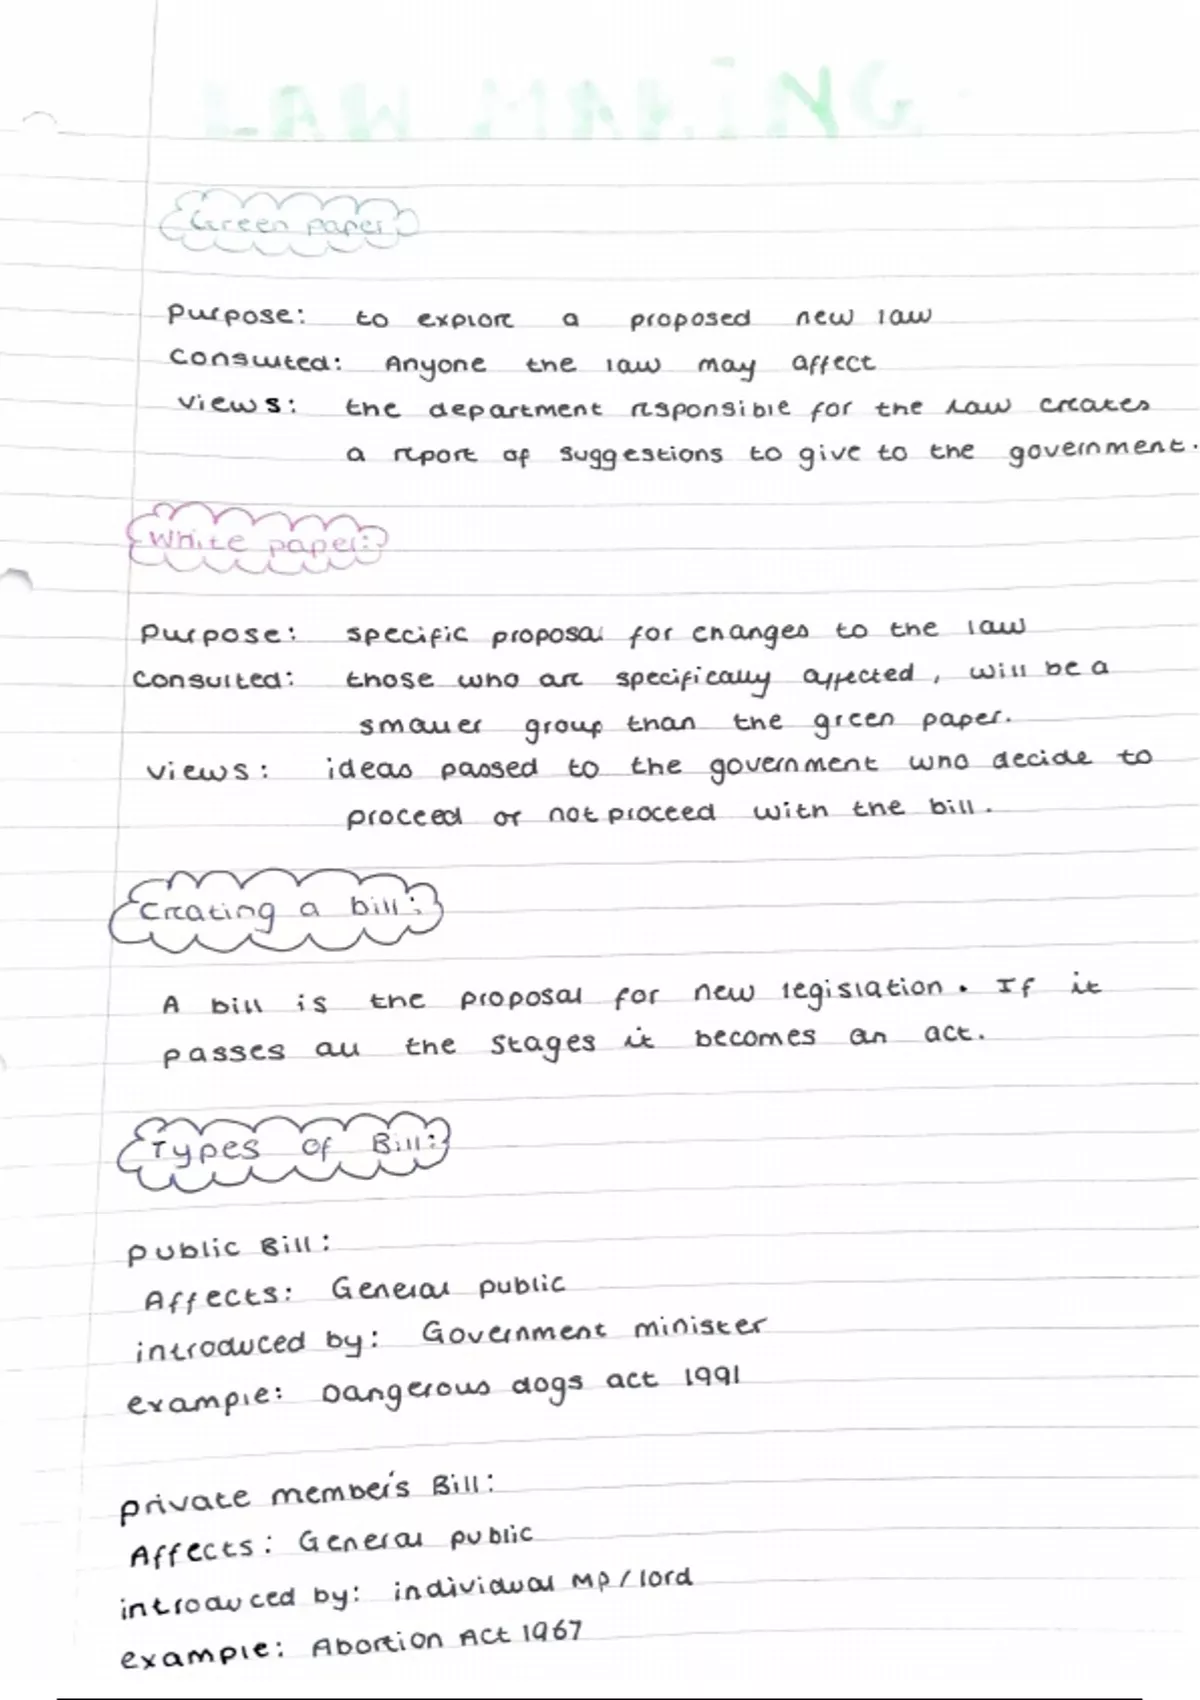 LAW MAKING
Green paper:
Purpose: to explore a proposed new law
Consulted: Anyone the law may affect
views: the department responsible for the law creates
a report of suggestions to give to the government.
White paper:
Purpose: specific proposal for changes to the law
Consulted: those who are specifically affected, will be a
smaller group than the green paper.
views: ideas passed to the government who decide to
proceed or not proceed with the bill.
Creating a bill:
A bill is the proposal for new legislation. If it
passes all the stages it becomes an act.
Types of Bill:
public Bill:
Affects: General public
introduced by: Government minister
example: Dangerous dogs act 1991
private member's Bill:
Affects: General public
introduced by: individual MP/lord
example: Abortion Act 1967